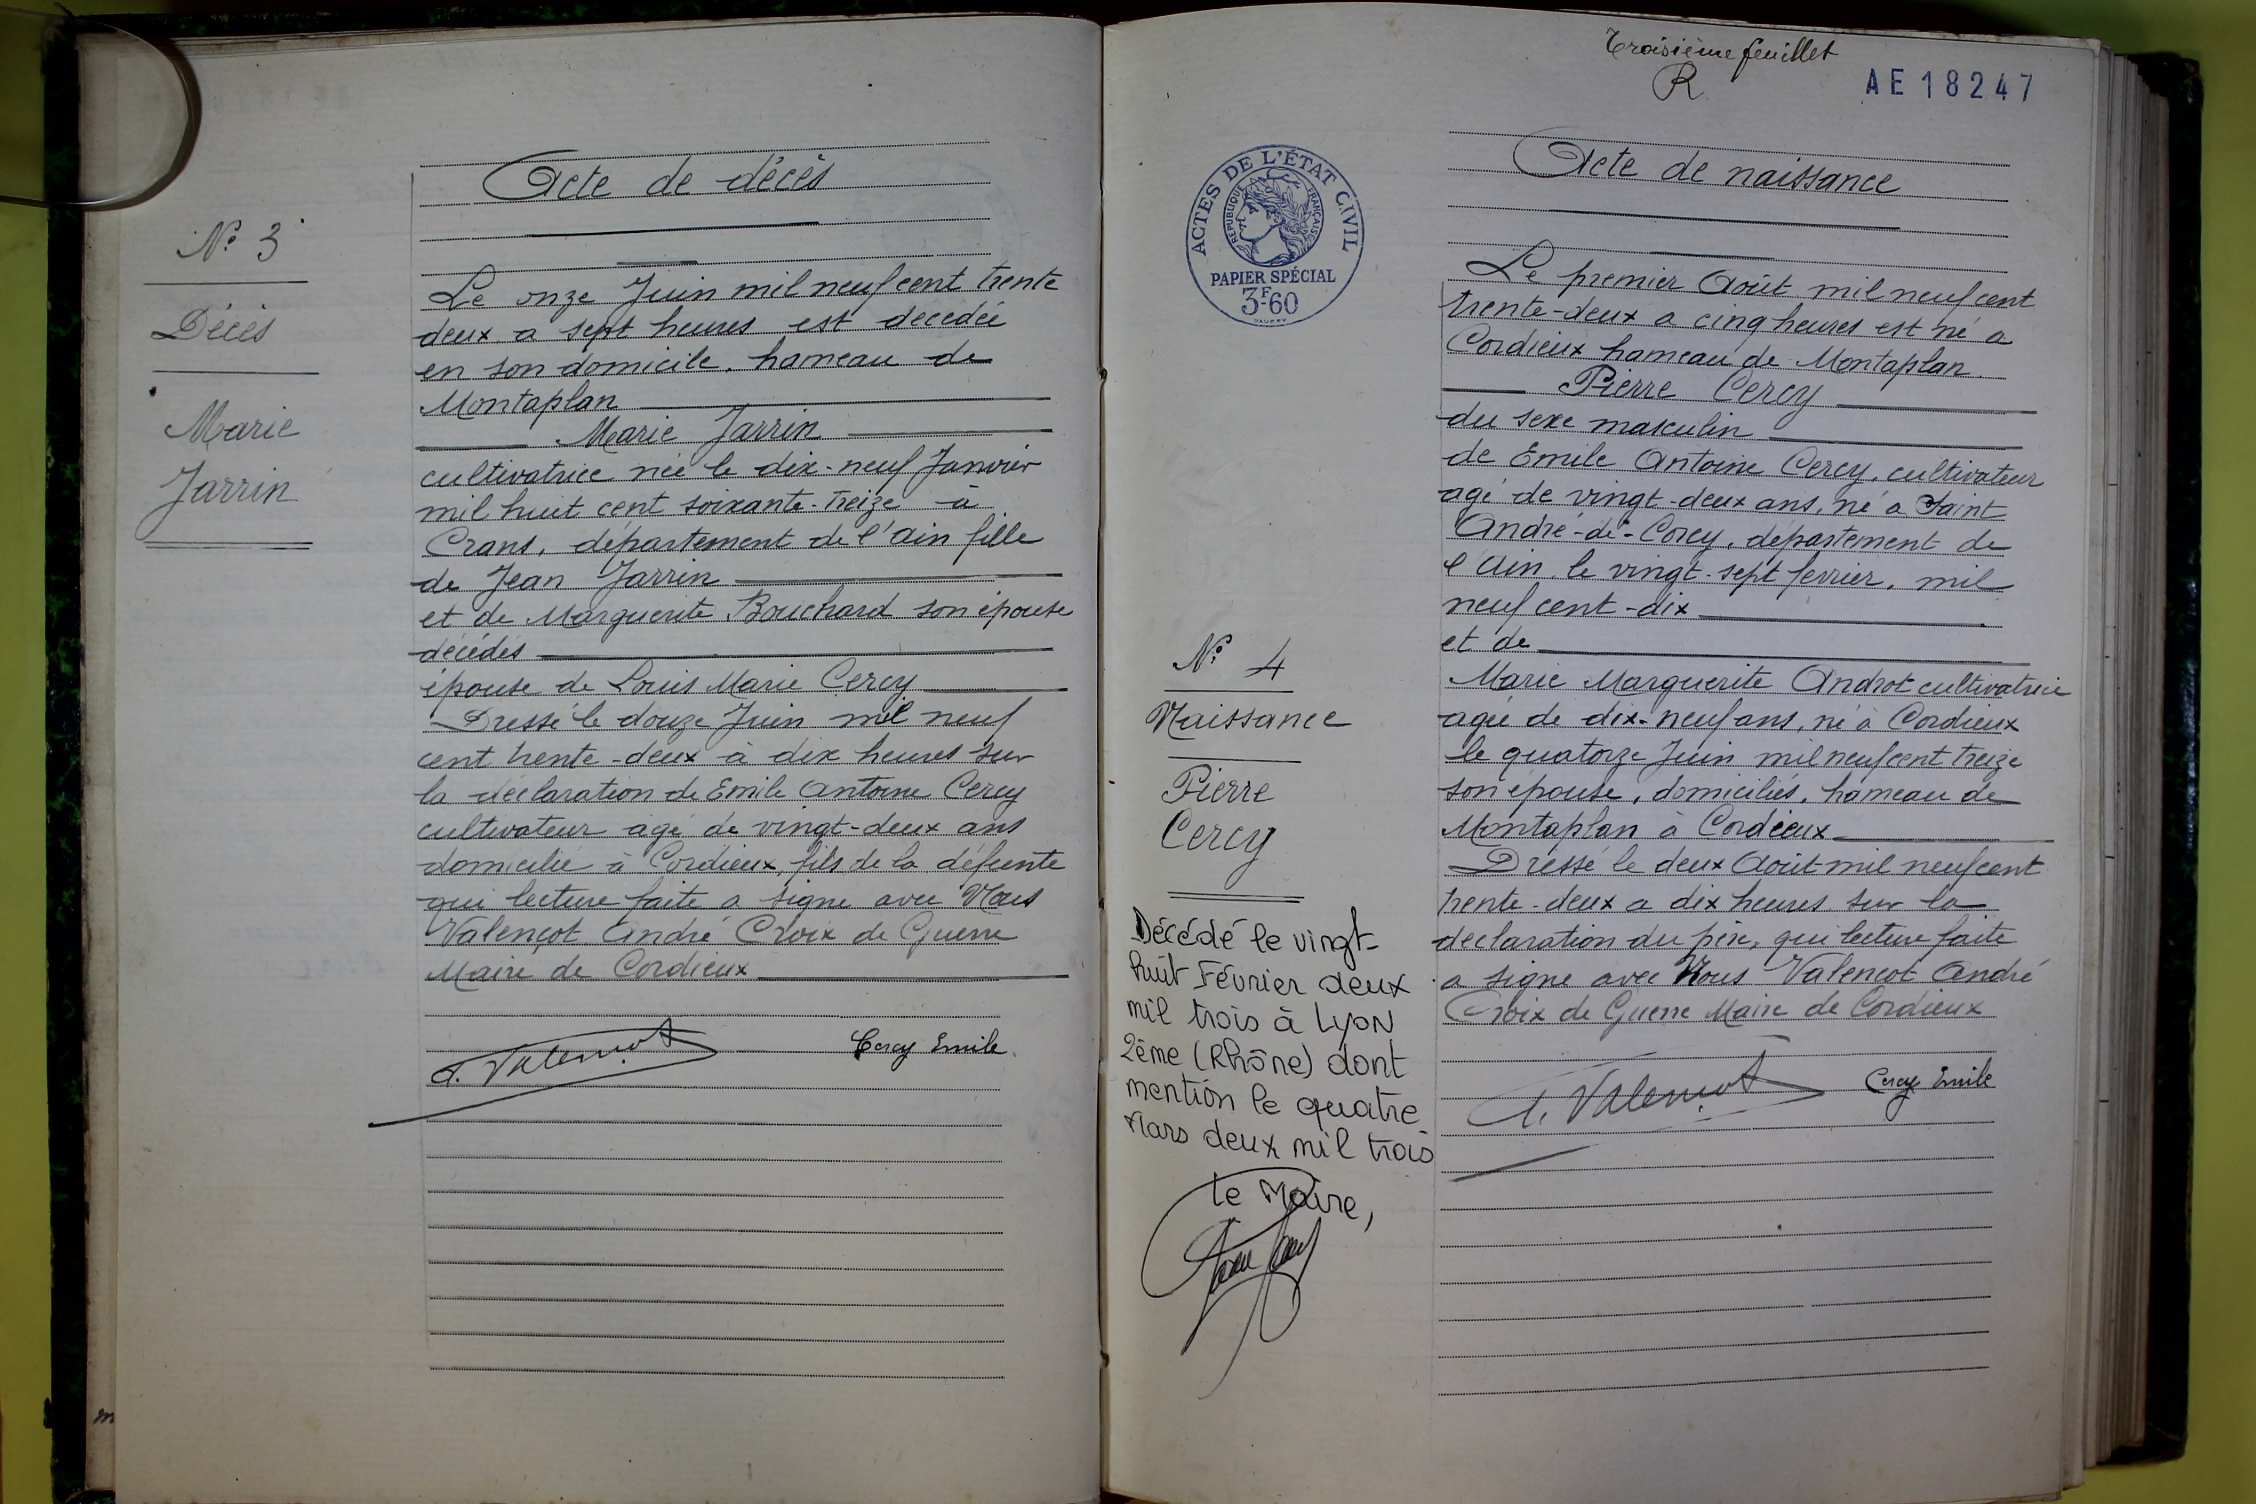 Acte de décès
N° 3
Décès
Marie
Jarrin
Le onze Juin mil neuf cent trente
deux a sept heures est decedée
en son domicile. hameau de
Montaplan
Marie Jarrin
cultivatrice née le dix-neuf Janvier
mil huit cent soixante-treize à
Crans, département de l'ain fille
de Jean Jarrin
et de Marguerite Bouchard son épouse
décédés
épouse de Louis Marie Cercy
Dressé le douze Juin mil neuf
cent trente-deux à dix heures sur
la déclaration de Emile Antoine Cercy
cultivateur agé de vingt-deux ans
domicilié à Cordieux, fils de la défunte
qui lecture faite a signé avec Nous
Valençot André Croix de Guerre
Maire de Cordieux
A. Valençot
Cercy Emile
Troisième feuillet
R
AE 18247
ACTES DE L'ÉTAT CIVIL
REPUBLIQUE FRANÇAISE
PAPIER SPÉCIAL
3F-60
Acte de naissance
N° 4
Naissance
Pierre
Cercy
Décédé le vingt-
huit Février deux
mil trois à Lyon
2ème (Rhône) dont
mention le quatre
Mars deux mil trois
Le Maire,
Le premier Août mil neuf cent
trente-deux a cinq heures est né a
Cordieux hameau de Montaplan
Pierre Cercy
du sexe masculin
de Emile Antoine Cercy, cultivateur
agé de vingt-deux ans, né a Saint
André-de-Corcy, département de
l'Ain, le vingt-sept fevrier, mil
neuf cent-dix
et de
Marie Marguerite Androt cultivatrice
agée de dix-neuf ans, né à Cordieux
le quatorze Juin mil neuf cent treize
son épouse, domiciliés, hameau de
Montaplan à Cordieux
Dressé le deux Août mil neuf cent
trente-deux a dix heures sur la
declaration du père, qui lecture faite
a signé avec Nous Valençot André
Croix de Guerre Maire de Cordieux
A. Valençot
Cercy Emile